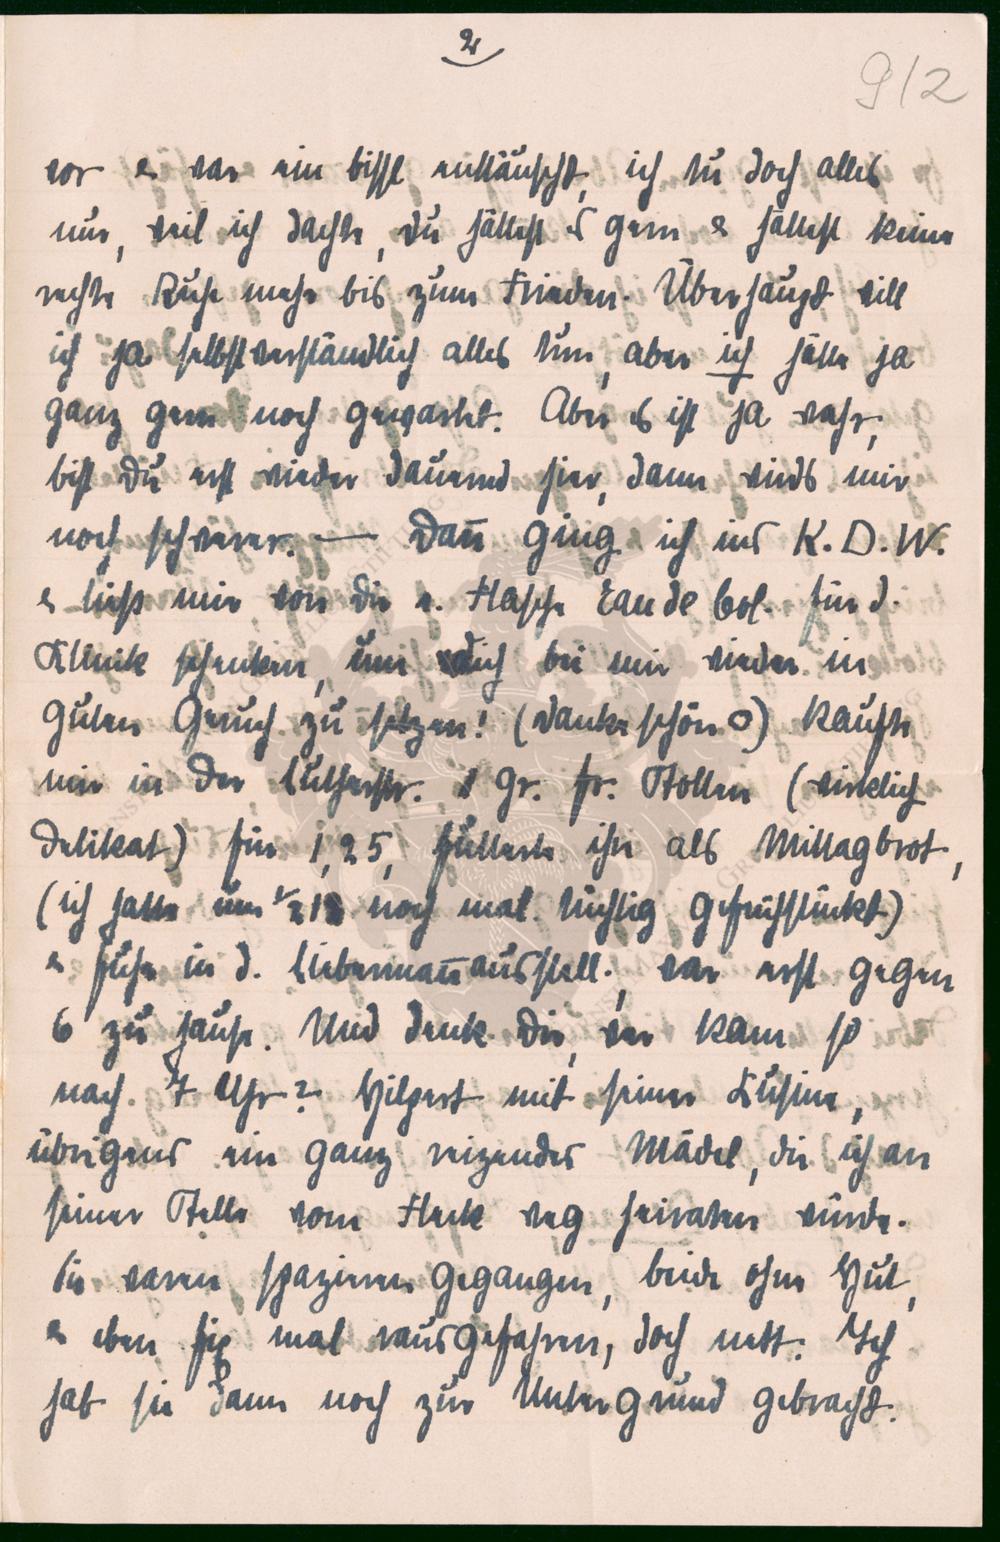 2
9/2
vor & war ein bissl enttäuscht, ich tu doch alles
nur, weil ich dachte, du hättest es gern & hättest keine
rechte Ruhe mehr bis zum Frieden. Überhaupt will
ich ja selbstverständlich alles tun, aber ich hätte ja
ganz gern noch gewartet. Aber es ist ja wahr,
bist Du erst wieder dauernd hier, dann wirds mir
noch schwerer. — Dañ ging ich ins K.D.W.
& ließ mir von dir e. Flasche Eau de Col. für d.
Klinik schenken, um dich bei mir wieder in
guten Geruch zu setzen! (danke schön O) kaufte
mir in der Lutherstr. 1 Gr. fr. Stollen (wirklich
delikat) für 1,25, futterte ihn als Mittagbrot,
(ich hatte um noch mal tüchtig gefrühstückt)
& fuhr in d. Liebermañausstell., war erst gegen
6 zu hause. Und denk Dir, wer kam so
nach 7 Uhr? Hilpert mit seiner Kusine,
übrigens ein ganz reizendes Mädel, die ich an
seiner Stelle vom Fleck weg heiraten würde.
Sie waren spazieren gegangen, beide ohne Hut,
& eben fix mal rausgefahren, doch nett. Ich
hab sie dann noch zur Untergrund gebracht.